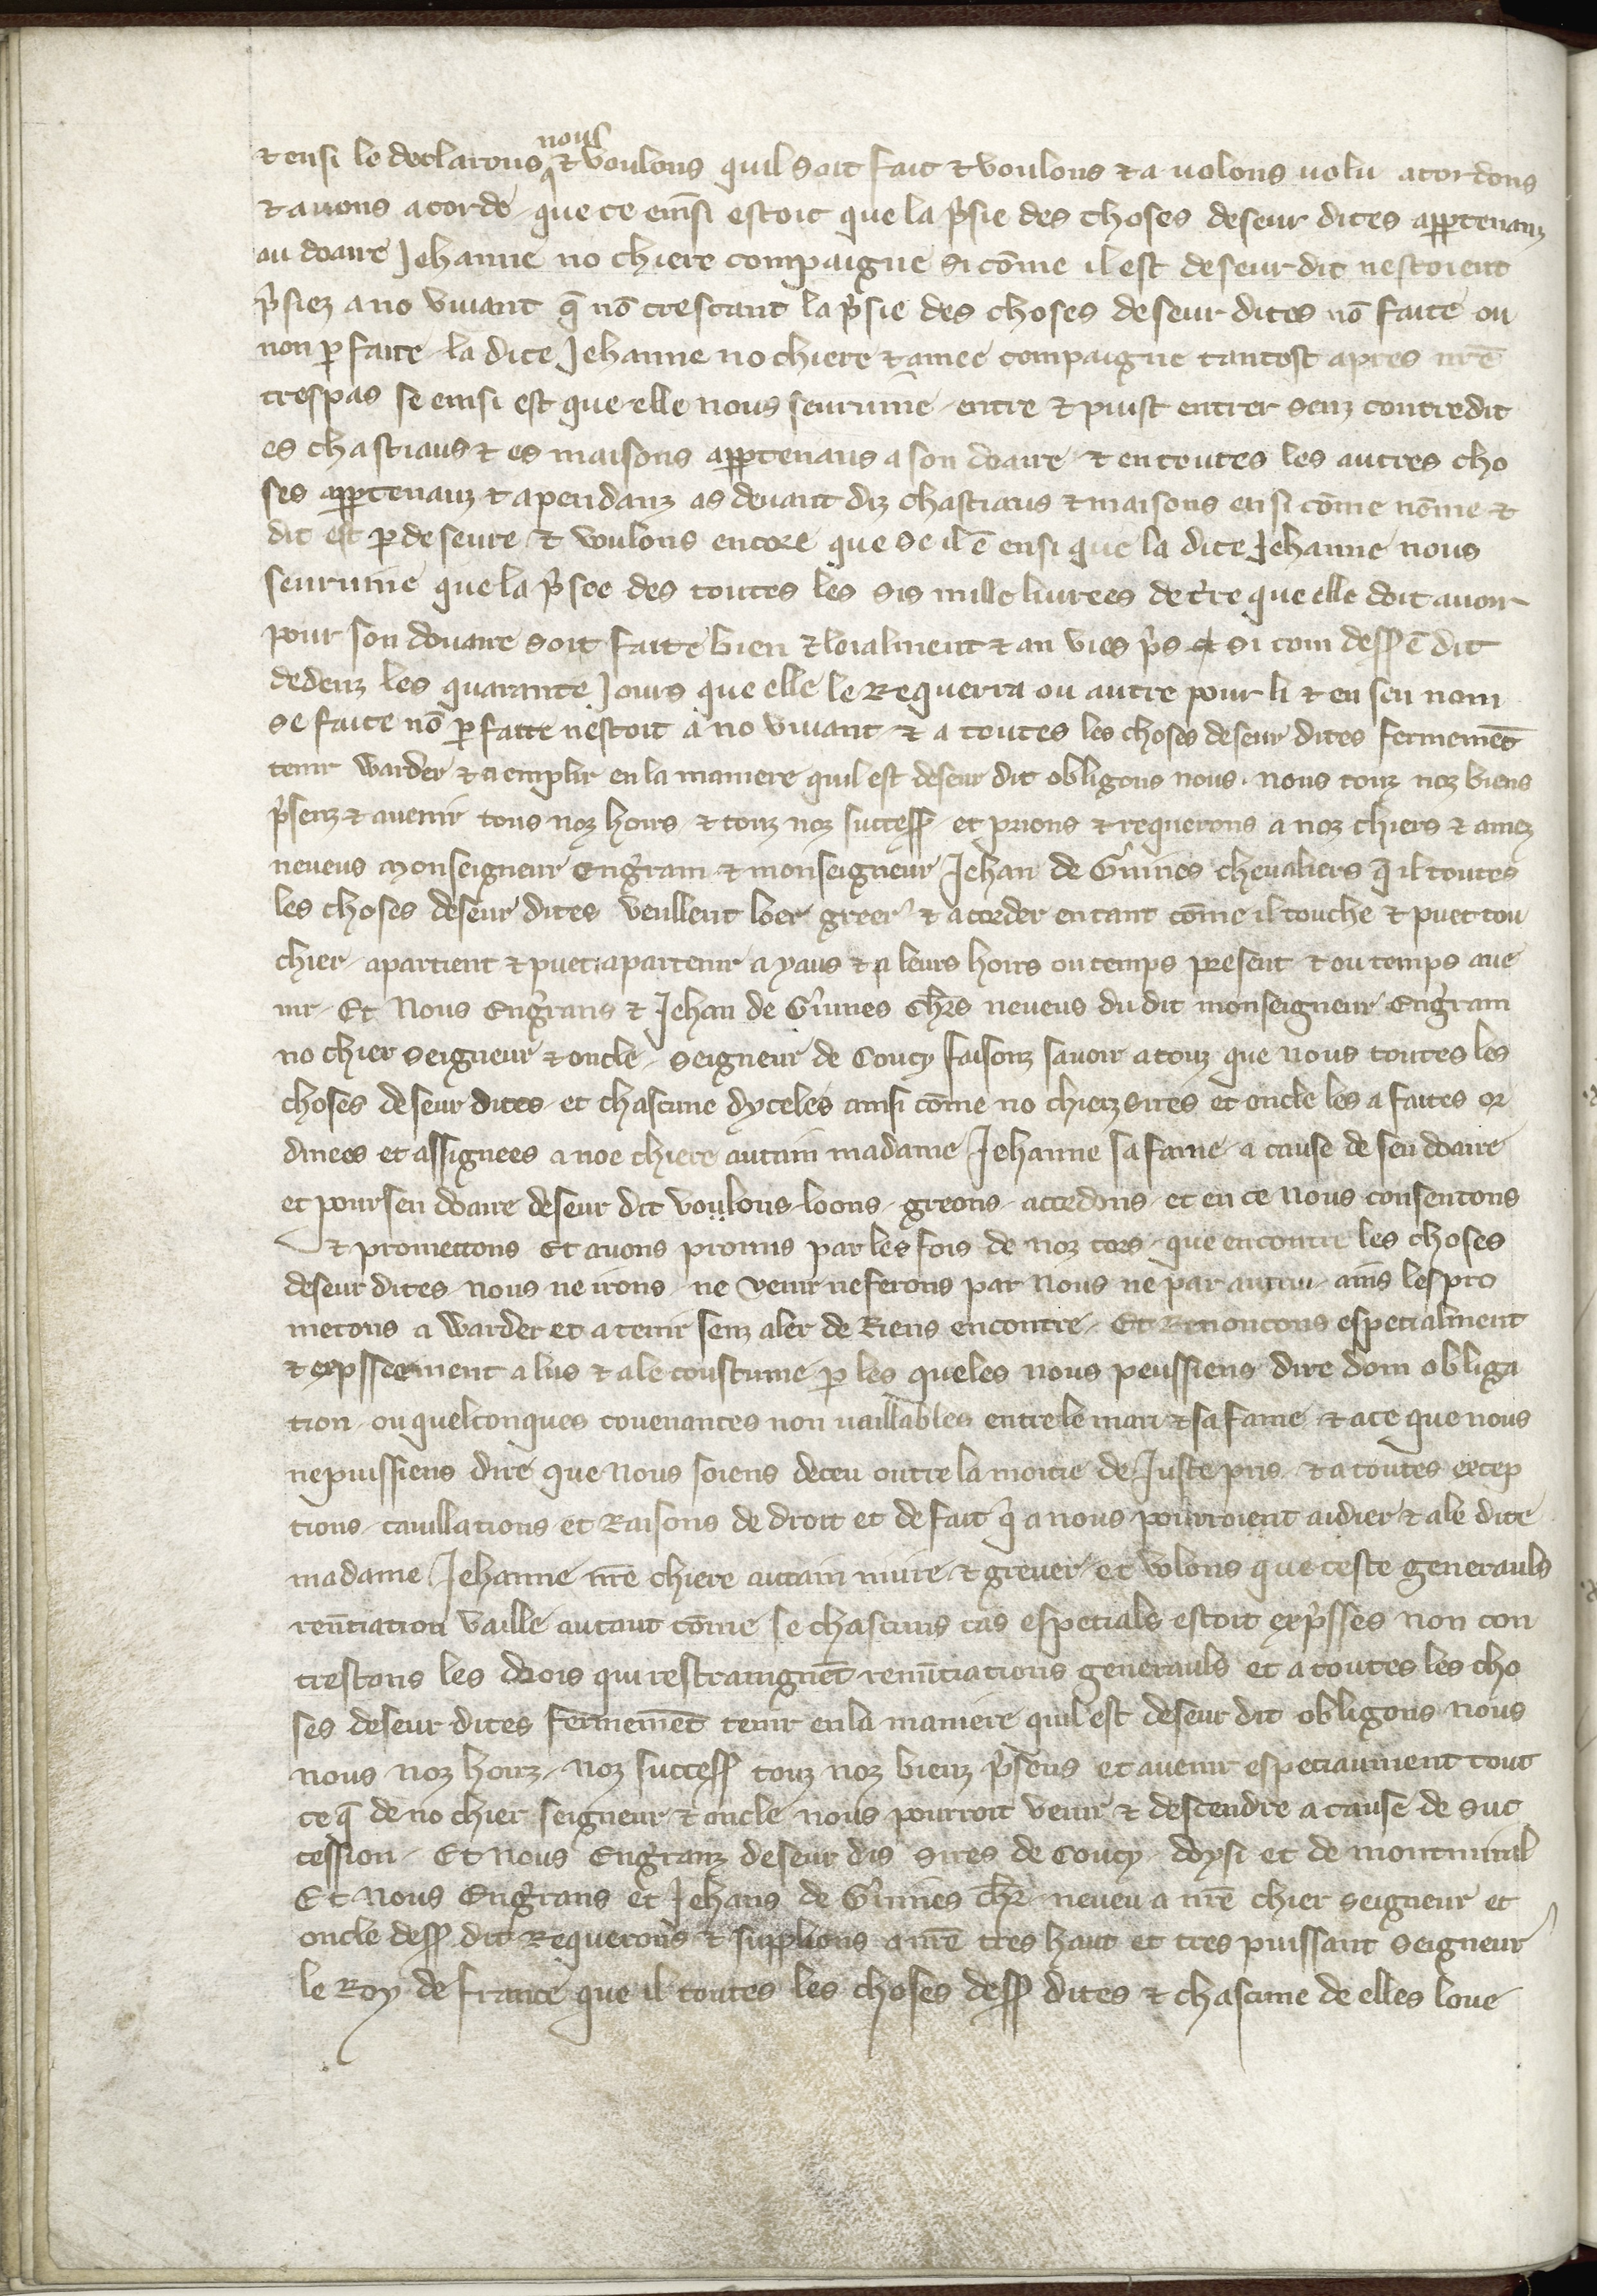 nous
& ensi le declarons & voulons quil soit fait & voulons & a volons volu acordons
& avons acorde que ce ensi estoit que la p̃sie des choses deseur dites appartenanz
au doaire Jehanne no chiere compaigne si cõme il est deseur dit nestoient
p̃siez a no vivant q̃ nõ crestant la p̃sie des choses deseur dites nõ faite ou
non p faite la dite Jehanne no chiere & amee compaigne tantost apres nr̃e
trespas se einsi est que elle nous seurvive entre & puist entrer senz contredit
es chastiaus & es maisons appartenans a son doaire & en toutes les autres cho
ses appartenanz & apendanz as devant diz chastiaus & maisons ensi cõme nõme &
dit est p deseure & voulons encore que se il ẽ ensi que la dite Jehanne nous
seurvive que la p̃see des toutes les sis mille livrees de t̃re que elle doit avoir
pour son douaire soit faite bien & loialment & au vies p̃s & si com dess̃ ẽ dit
dedenz les quarante Jours que elle le Requerra ou autre pour li & en sen nom
se faite nõ p faite nestoit a no vivant & a toutes les choses deseur dites fermemẽt
tenir warder & a emplir en la maniere quil est deseur dit obligons nous. nous touz noz biens
p̃senz & avenir tous noz hoirs & touz noz success̃ et prions & requerons a noz chiers & amez
neveus monseigneur Eng̃ran & monseigneur Jehan de Guines chevaliers q̃ il toutes
les choses deseur dites veullent loer greer & acorder en tant cõme il touche & puet tou
chier apartient & puet apartenir a yaus & a leurs hoirs ou temps present & ou temps ave
nir Et Nous Eng̃rans & Jehan de Guines ch̃rs neveus du dit monseigneur Eng̃ran
no chier seigneur & oncle seigneur de Coucy faisonz savoir a touz que nous toutes les
choses deseur dites et chascune dyceles ainsi cõme no chierz sires et oncle les a faites or
dinees et assignees a noe chiere antain madame Jehanne sa fame a cause de sen doaire
et pour sen doaire deseur dit voulons loons greons accordons et en ce Nous consentons
& promettons Et avons promis par les fois de noz cors que encontre les choses
deseur dites nous ne irons ne venir ne ferons par nous ne par autrui ains les pro
metons a warder et a tenir senz aler de Riens encontre Et Renoncons especialment
& exp̃sseement a lus & a le coustume p les queles nous peussiens dire dom obliga
tion ou quelconques covenances non vaillables entre le mari & sa fame & a ce que nous
ne puissiens dire que nous soiens deceu outre la moitie de Juste pris & a toutes excep
tions cavillations et Raisons de droit et de fait q̃ a nous pourroient aidier & a le dite
madame Jehanne nr̃e chiere antain nuire & grever et volons que ceste generauls
renũtiation vaille autant cõme se chascuns cas especials estoit exp̃sses non con
trestans les drois qui restraingnẽt renũtiations generauls et a toutes les cho
ses deseur dites fermemẽt tenir en la maniere quil est deseur dit obligons nous
nous noz hoirz noz success̃ touz noz bienz p̃sens et avenir especiaument tout
ce q̃ de no chier seigneur & oncle nous pourroit venir & descendre a cause de suc
cession Et Nous Eng̃ranz deseur dis sires de Coucy doysi et de montmirail
Et Nous Eng̃rans et Jehans de Guines ch̃r neveu a nr̃e chier seigneur et
oncle dess̃ dit Requerons & supplions a nr̃e tres haut et tres puissant seigneur
le Roy de france que il toutes les choses dess̃ dites & chascune de elles loue